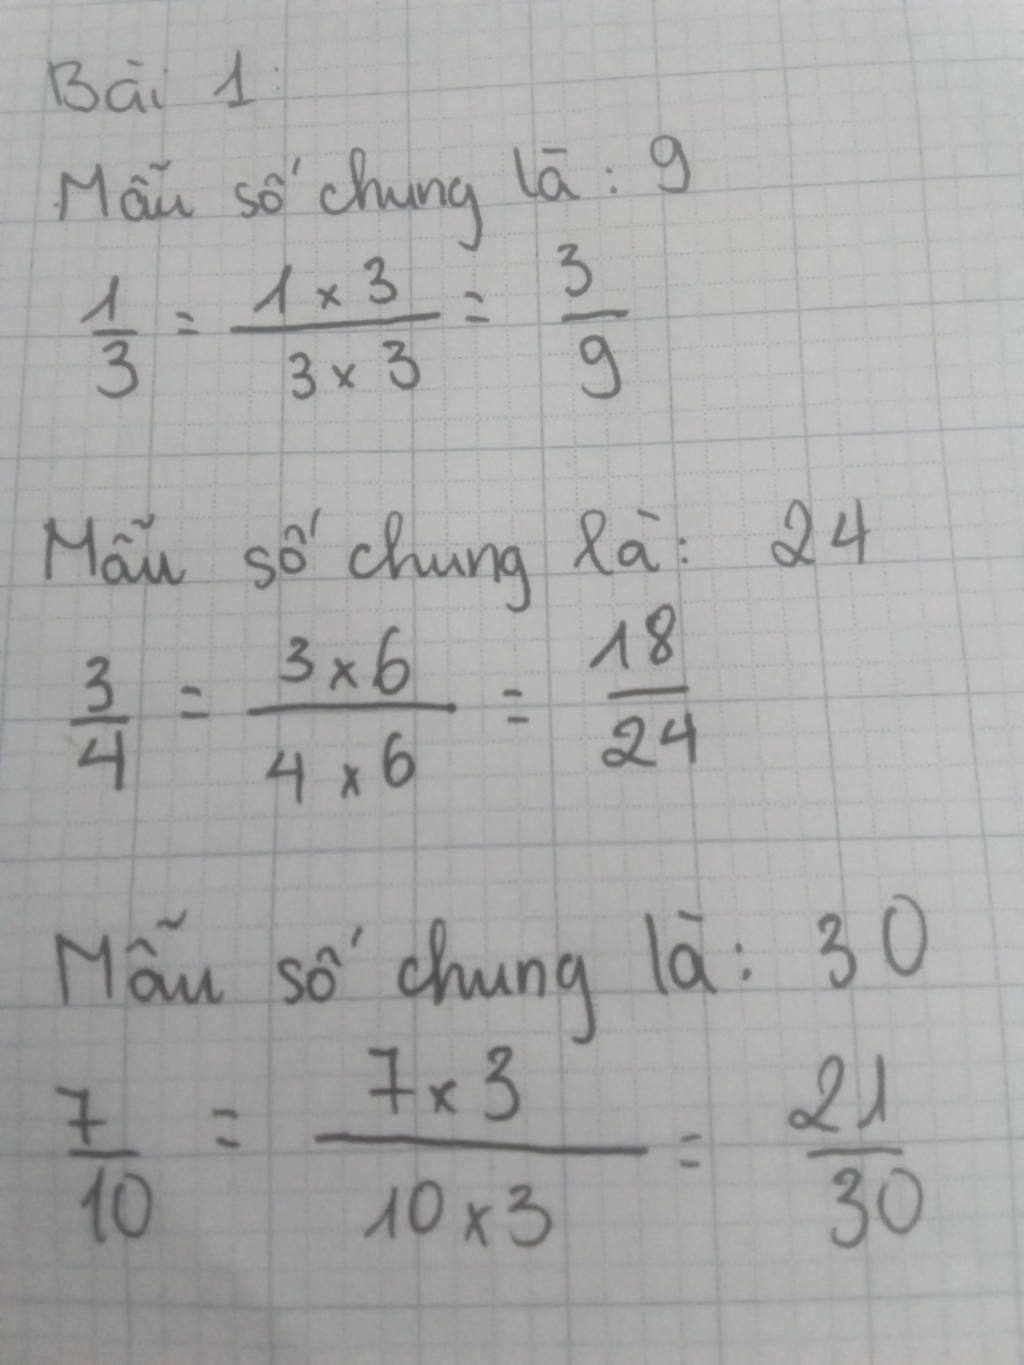 Bài 1:
Mẫu số chung là: 9
1/3 = (1 × 3)/(3 × 3) = 3/9
Mẫu số chung là: 24
3/4 = (3 × 6)/(4 × 6) = 18/24
Mẫu số chung là: 30
7/10 = (7 × 3)/(10 × 3) = 21/30